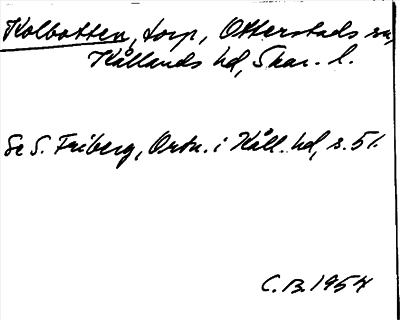 Kolbotten, torp, Otterstads sn,
Kållands hd, Skar. l.
Se S. Friberg, Ortn. i Kåll. hd, s. 51.
C.B. 1954